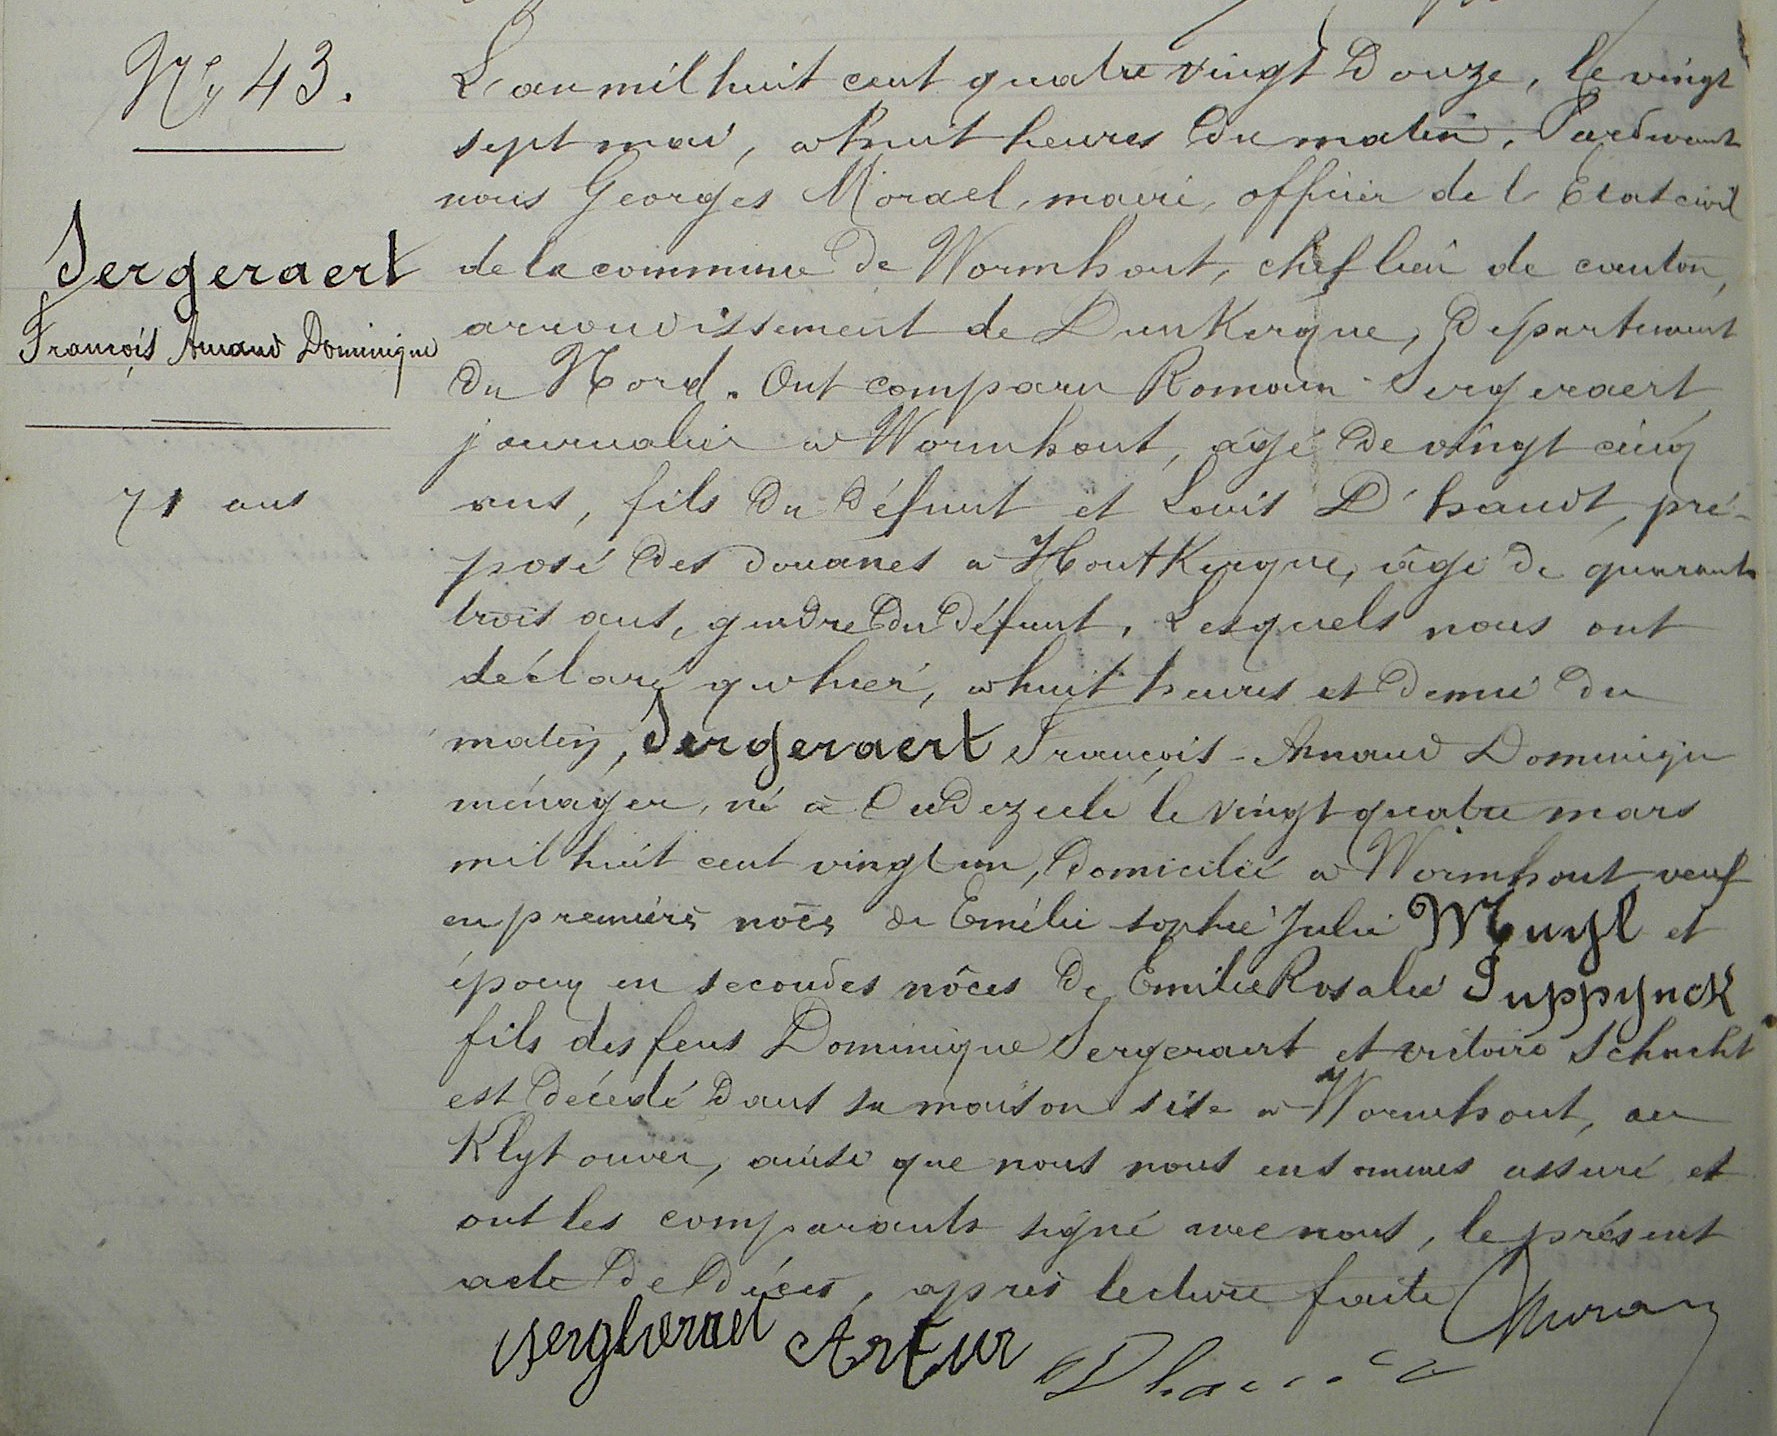 N° 43.
Sergeraert
François Amand Dominique
71 ans
L'an mil huit cent quatre vingt Douze, le vingt
sept mai, à huit heures du matin, Pardevant
nous Georges Morael, maire, officier de l'Etat civil
de la commune de Wormhout, chef lieu de canton,
arrondissement de Dunkerque, Département
du Nord. Ont comparu Romain Sergeraert,
journalier à Wormhout, âgé de vingt cinq
ans, fils du défunt et Louis D'haudt, pré-
posé des douanes à Houtkerque, âgé de quarante
trois ans, gendre du défunt, Lesquels nous ont
déclaré qu'hier, à huit heures et demie du
matin, Sergeraert François-Amand Dominique
ménager, né à Oudezeele le vingt quatre mars
mil huit cent vingt un, Domicilié à Wormhout, veuf
en premières nôces de Emélie Sophie Julie Muyl et
époux en secondes nôces de Emélie Rosalie Suppynck
fils des feus Dominique Sergeraert et victoire Schacht
est Décédé Dans sa maison sise à Wormhout, au
Klyt ouver, ainsi que nous nous en sommes assuré et
ont les comparants signé avec nous, le présent
acte de Décès, après lecture faite
Sergheraert Artur